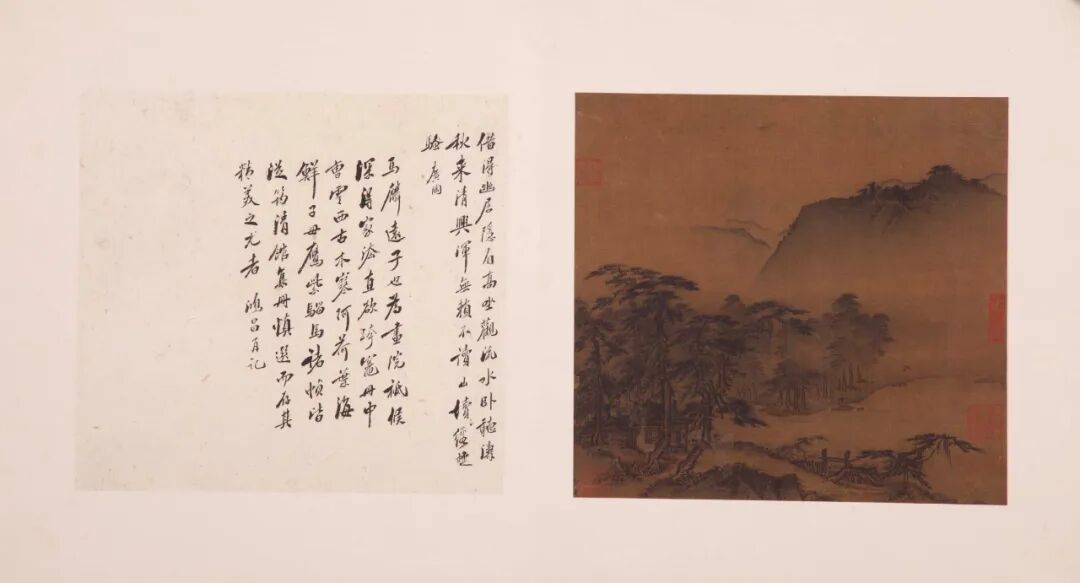 借得幽居隱石高坐觀流水卧聽濤
秋来清興渾無賴不讀山
騷
馬麟遠子也為畫院祗候
深得家法直欲跨竈册中
曹雲西古木寒阿荷葉海
鮮子母鷹紫騮馬諸幀皆
從筠清館集册慎選而存其
精美之尤者 昌 記